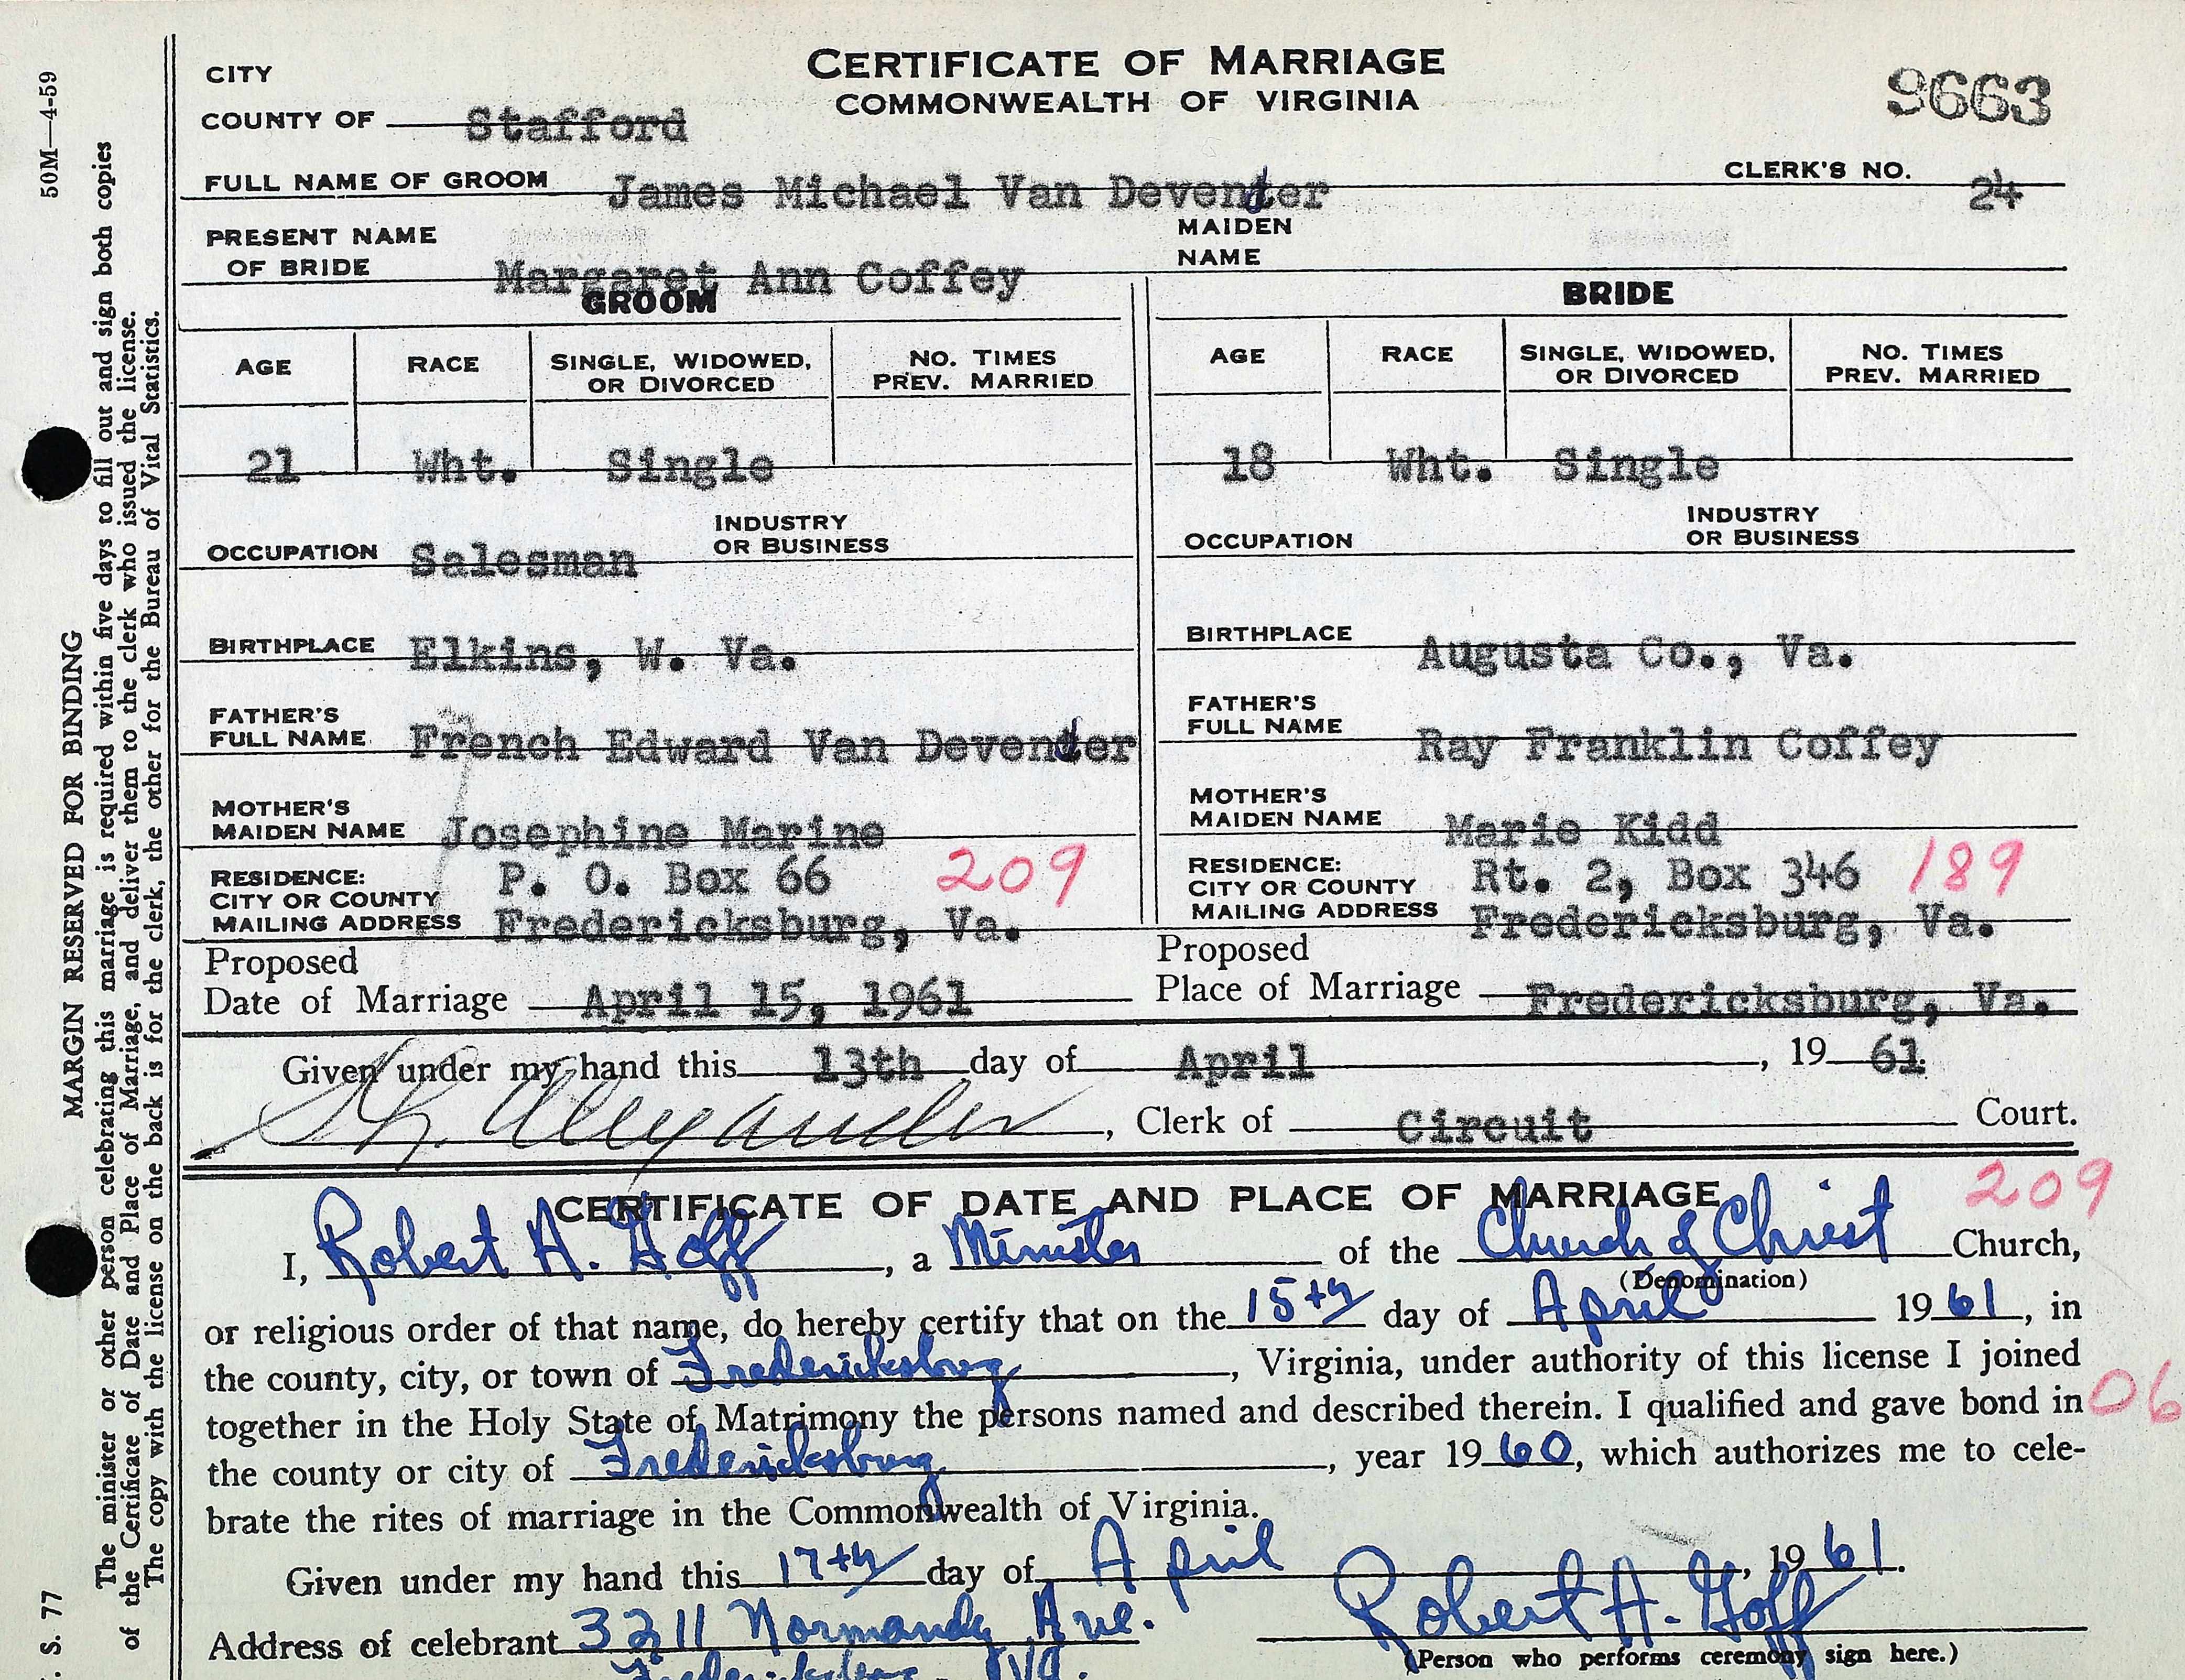 CERTIFICATE OF MARRIAGE
COMMONWEALTH OF VIRGINIA
9663
CITY
COUNTY OF Stafford
CLERK'S NO. 24
FULL NAME OF GROOM James Michael Van Devender
PRESENT NAME OF BRIDE Margaret Ann Coffey
MAIDEN NAME
GROOM
BRIDE
AGE RACE SINGLE, WIDOWED, OR DIVORCED NO. TIMES PREV. MARRIED
21 Wht. Single
AGE RACE SINGLE, WIDOWED, OR DIVORCED NO. TIMES PREV. MARRIED
18 Wht. Single
OCCUPATION Salesman INDUSTRY OR BUSINESS
OCCUPATION INDUSTRY OR BUSINESS
BIRTHPLACE Elkins, W. Va.
BIRTHPLACE Augusta Co., Va.
FATHER'S FULL NAME French Edward Van Devender
FATHER'S FULL NAME Ray Franklin Coffey
MOTHER'S MAIDEN NAME Josephine Marine
MOTHER'S MAIDEN NAME Marie Kidd
RESIDENCE: P. O. Box 66 209
CITY OR COUNTY
MAILING ADDRESS Fredericksburg, Va.
RESIDENCE: Rt. 2, Box 346 189
CITY OR COUNTY
MAILING ADDRESS Fredericksburg, Va.
Proposed
Date of Marriage April 15, 1961
Proposed
Place of Marriage Fredericksburg, Va.
Given under my hand this 13th day of April, 19 61
Alexander, Clerk of Circuit Court.
CERTIFICATE OF DATE AND PLACE OF MARRIAGE
209
I, Robert A. Goff, a Minister of the Church of Christ Church,
(Denomination)
or religious order of that name, do hereby certify that on the 15th day of April 19 61, in
the county, city, or town of Fredericksburg, Virginia, under authority of this license I joined
together in the Holy State of Matrimony the persons named and described therein. I qualified and gave bond in 06
the county or city of Fredericksburg, year 19 60, which authorizes me to cele-
brate the rites of marriage in the Commonwealth of Virginia.
Given under my hand this 17th day of April, 19 61.
Address of celebrant 3211 Normandy Ave.
Fredericksburg, Va.
Robert A. Goff
(Person who performs ceremony sign here.)
50M—4-59
MARGIN RESERVED FOR BINDING
The minister or other person celebrating this marriage is required within five days to fill out and sign both copies
of the Certificate of Date and Place of Marriage, and deliver them to the clerk who issued the license.
The copy with the license on the back is for the clerk, the other for the Bureau of Vital Statistics.
S. 77